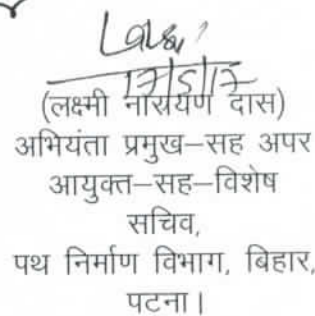 17/5/17
(लक्ष्मी नारायण दास)
अभियंता प्रमुख–सह अपर
आयुक्त–सह–विशेष
सचिव,
पथ निर्माण विभाग, बिहार,
पटना।